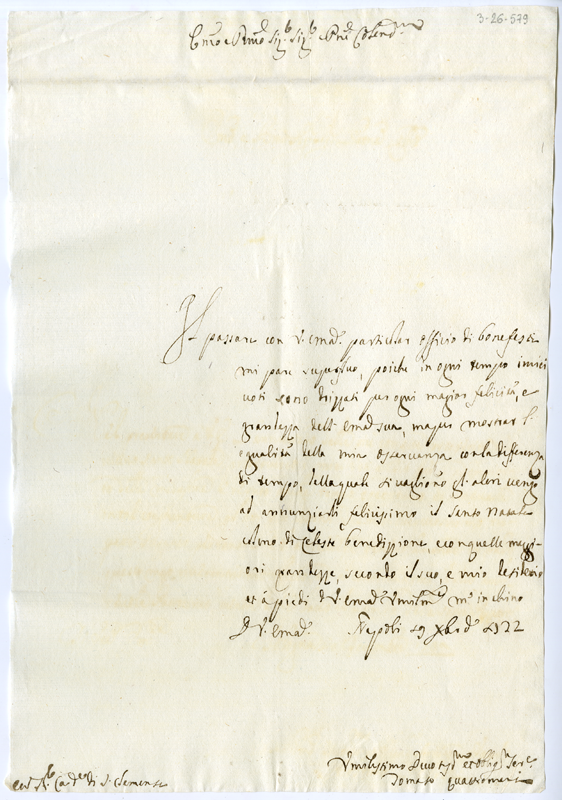 3-26-579
Em̃o e Rmo Sig.r Sig.r e Pñe Colend.mo
Il passare con V. Emã. particolar officio di bonefeste
mi pare superfluo, poiche in ogni tempo i miei
voti sono drizzati per ogni magior felicità, e
grandezza dell' Emã. sua, ma per mostrar l'
egualità della mia osservanza con la differenza
di tempo, della quale si vagliono gl'altri vengo
ad annunziarli felicissimo il Santo Natale
colmo di Celeste benedizzione, e con quelle maggi-
ori grandezze, secondo il suo, e mio desiderio
et à piedi di V. Emã. Umilm.te m'inchino
D V. Emã. Napoli 19 Xbrê 1722
Umilissimo Devotis.mo et Obblig.mo Ser.e
Donato Quattromani
Sr. Ca.de di S. Clemente